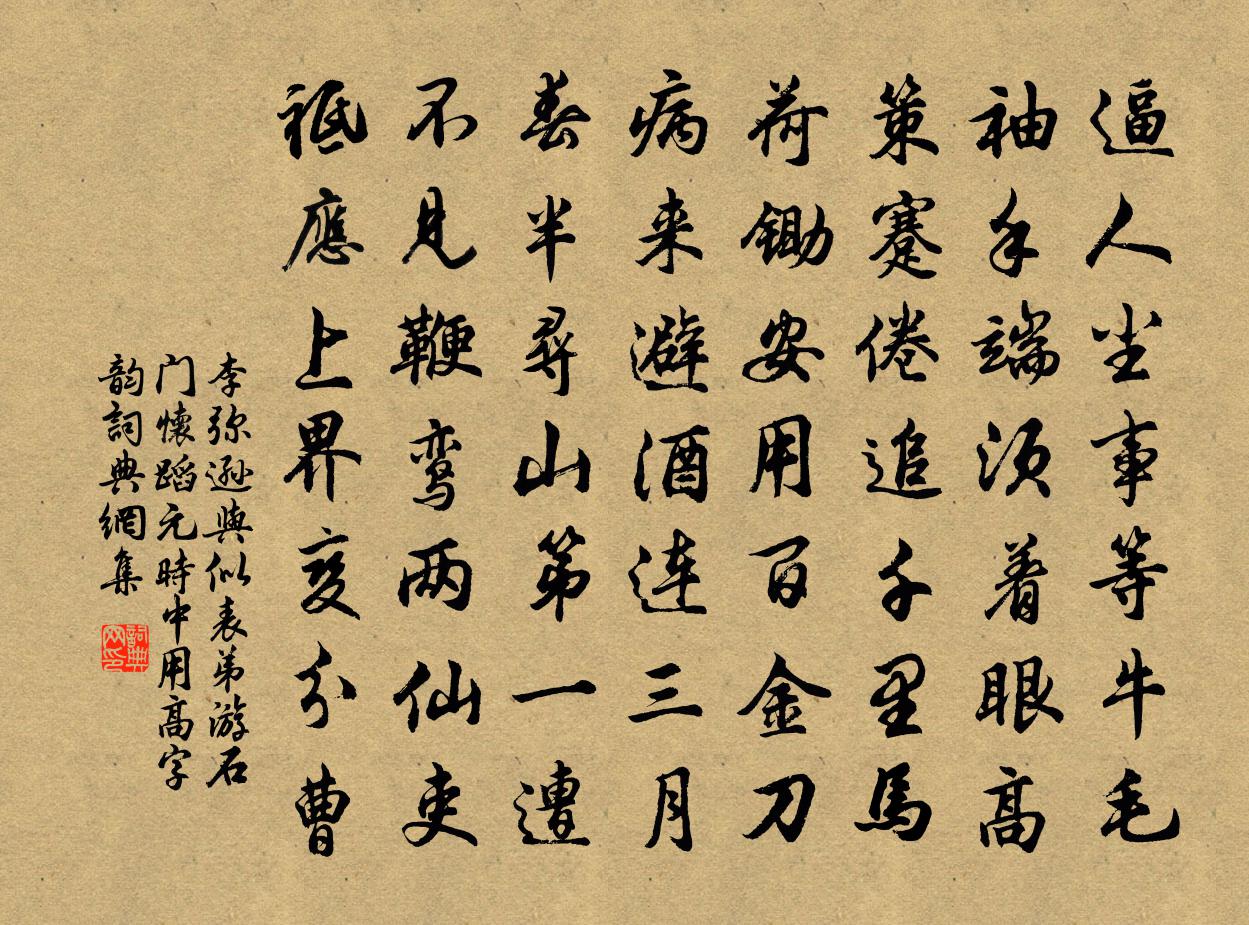 逼人尘事等牛毛
袖手端须着眼高
策蹇倦追千里馬
荷鋤安用百金刀
病来避酒连三月
春半尋山第一遭
不見鞭鸾两仙吏
祗應上界变分曹
李弥遜與似表弟游石
门懷蹈元時中用高字
韵詞典網集
詞典网印